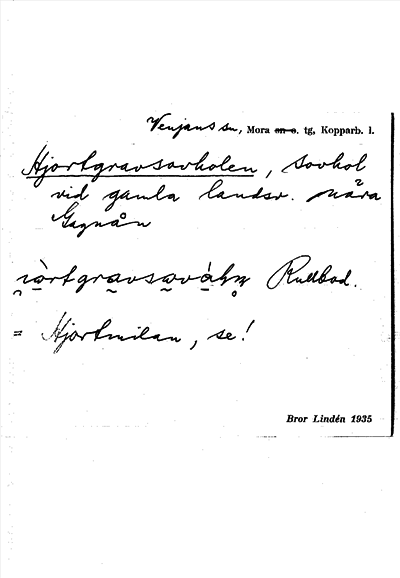 Venjans sn, Mora on o. tg, Kopparb. l.
Hjortgravsovholen, sovhol
vid gamla landsv. nära
Gagnån
Rullbod.
= Hjortmilan, se!
Bror Lindén 1935